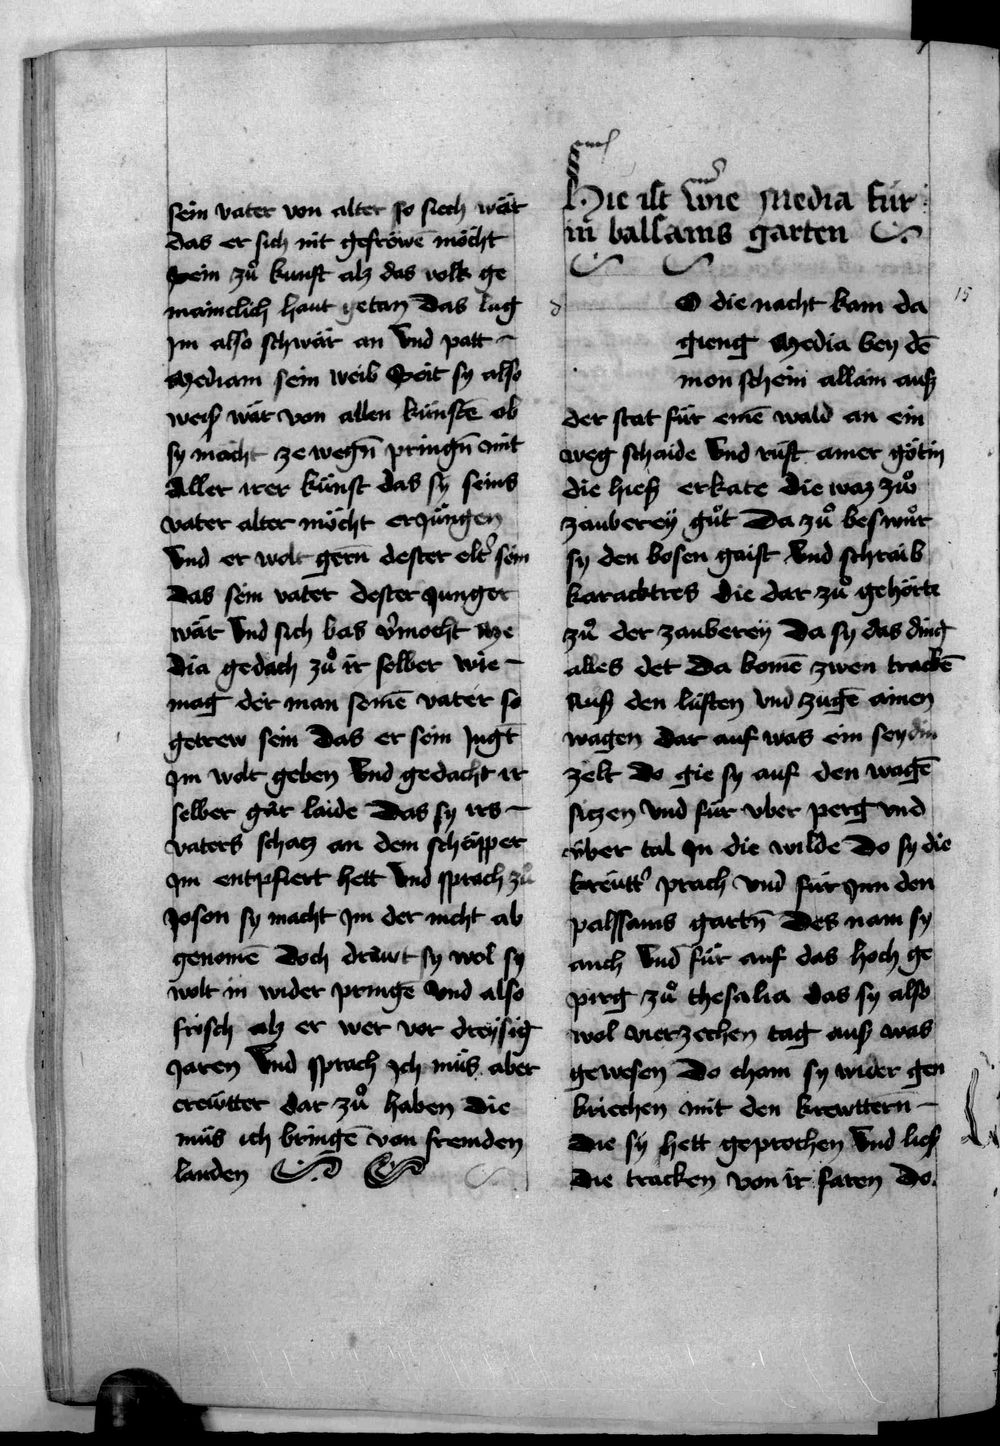 sein vater von alter so siech wär
das er sich nit gefröwē möcht
sein zuͦ kunft alz das volk ge
mainclich haut getan Das lag
Im also schwär an Vnd patt
Mediam sein weib Seit sy also
weis wär von allen künstē ob
sy mächt ze wegn̄ pringn̄ mit
Aller irer künst das sy seins
vater alter möcht erjüngen
Vnd er wolt gern̄ dester elt̄ sein
Das sein vater dester Junger
wär Vnd sich bas v̄mocht Me
dia gedach zuͦ ir selber wie
mag der man seinē vater so
getrew sein Das er sein Jugt
Im wolt geben Vnd gedacht ir
selber gar laide Das sy irs
vaters schatz an dem schäpper
Im entpfiert hett Vnd sprach zuͦ
Joson sy macht Im der nicht ab
genomē Doch drawt sy wol sy
wolt in wider pringē Vnd also
frisch alz er wer vor dreysig
Jaren Vnd sprach Ich müs aber
crewtter dar zuͦ haben Die
müs ich bringē von fremden
landen
Hie ist wie Media für
in̄ balsams garten
O die nacht kam da
gieng Media bey dē
mon schein allain aus
der stat für einē wald an ein
weg schaide Vnd rüft ainer götin
die hies erkate die waz zuͦ
zauberey guͦt Da zuͦ beswuͦr
sy den bosen gaist Vnd schraib
karacktres die dar zuͦ gehörte
zuͦ der zauberey Da sy das ding
alles det Da komē zwen trackē
Aus den lüften vnd zugē ainen
wagen dar auf was ein seydin
zelt Do gie sy auf den wagē
sitzen Vnd für vber perg vnd
vber tal In die wilde Do sy die
kreutt̄ prach Vnd für Inn den
palssams gartn̄ Des nam sy
auch Vnd für auf das hoch ge
pirg zuͦ thesalia das sy also
wol vierzechen tag aus was
gewesen Do cham sy wider gen
kriechen mit den krewttern
Die sy hett geprochen Vnd lies
die tracken von ir faren Do
15